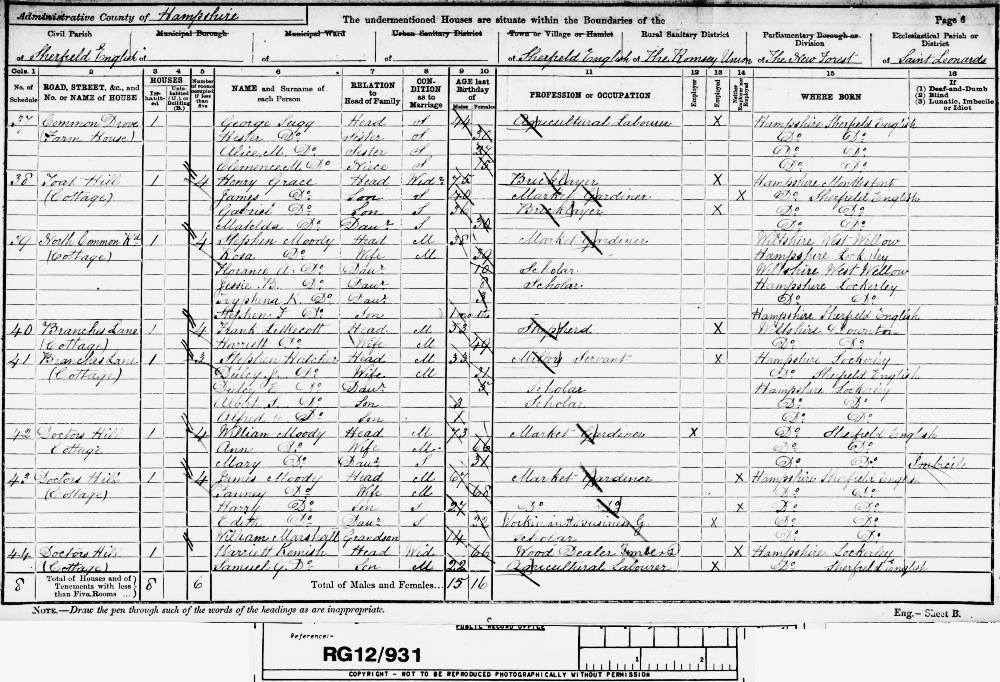 Administrative County of Hampshire The undermentioned Houses are situate within the Boundaries of the Page 6
Civil Parish Municipal Borough Municipal Ward Urban Sanitary District Town or Village or Hamlet Rural Sanitary District Parliamentary Borough or Division Ecclesiastical Parish or District
of Sherfield English of of of of Sherfield English of The Romsey Union of The New Forest of Saint Leonards
Cols. 1 2 3 4 5 6 7 8 9 10 11 12 13 14 15 16
No. of Schedule ROAD, STREET, &c., and No. or NAME of HOUSE HOUSES Inhabited Uninhabited (U.) or Building (B.) Number of rooms occupied if less than five NAME and Surname of each Person RELATION to Head of Family CONDITION as to Marriage AGE last Birthday of Males Females PROFESSION or OCCUPATION Employer Employed Neither Employer nor Employed WHERE BORN If (1) Deaf-and-Dumb (2) Blind (3) Lunatic, Imbecile or Idiot
37 Common Drove 1 George Head S 44 Agricultural Labourer X Hampshire Sherfield English
(Farm House) Hester Do Sister S Do Do
Alice M. Do Sister S Do Do
Clemence M. Do Niece S 15 Do Do
38 Toat Hill 1 4 Henry Grace Head Widr 75 Bricklayer X Hampshire Mottisfont
(Cottage) James Do Son S 40 Market Gardiner X Do Sherfield English
Gabriel Do Son S 36 Bricklayer X Do Do
Matilda Do Daur S 30 Do Do
39 North Common Rd 1 4 Stephen Moody Head M 38 Market Gardiner Wiltshire West Wellow
(Cottage) Rosa Do Wife M 39 Hampshire Lockerley
Florance A. Do Daur 10 Scholar Wiltshire West Wellow
Jessie B. Do Daur 8 Scholar Hampshire Lockerley
Tryphena K. Do Daur 3 Do Do
Stephen F. Do Son Hampshire Sherfield English
40 Branches Lane 1 4 Frank Head M 53 Shepherd X Wiltshire Downton
(Cottage) Harriett Do Wife M 44 Do Do
41 Branches Lane 1 3 Stephen Hatcher Head M 33 Servant X Hampshire Lockerley
(Cottage) Do Wife M 31 Do Sherfield English
E. Do Daur 5 Scholar Hampshire Lockerley
Albert S. Do Son 3 Scholar Do Do
Alfred Do Son 1 Do Do
42 Doctors Hill 1 4 William Moody Head M 73 Market Gardiner X Do Sherfield English
Cottage Ann Do Wife M 66 Do Do
Mary Do Daur S 31 Do Do Imbicile
43 Doctors Hill 1 4 James Moody Head M 67 Market Gardiner X Hampshire Sherfield English
(Cottage) Fanney Do Wife M 68 Do Do
Harry Do Son S 27 Do X Do Do
Edith Do Daur S 22 X Do Do
William Marshall Grandson 14 Scholar Do Do
44 Doctors Hill 1 Harriett Kemish Head Wid 66 Wood Dealer X Hampshire Lockerley
(Cottage) Samuel G. Do Son M 22 Agricultural Labourer X Do Sherfield English
8 Total of Houses and of Tenements with less than Five Rooms ... 8 6 Total of Males and Females... 15 16
NOTE.—Draw the pen through such of the words of the headings as are inappropriate. Eng.- Sheet B.
PUBLIC RECORD OFFICE
Reference:-
RG12/931
1 2
COPYRIGHT - NOT TO BE REPRODUCED PHOTOGRAPHICALLY WITHOUT PERMISSION